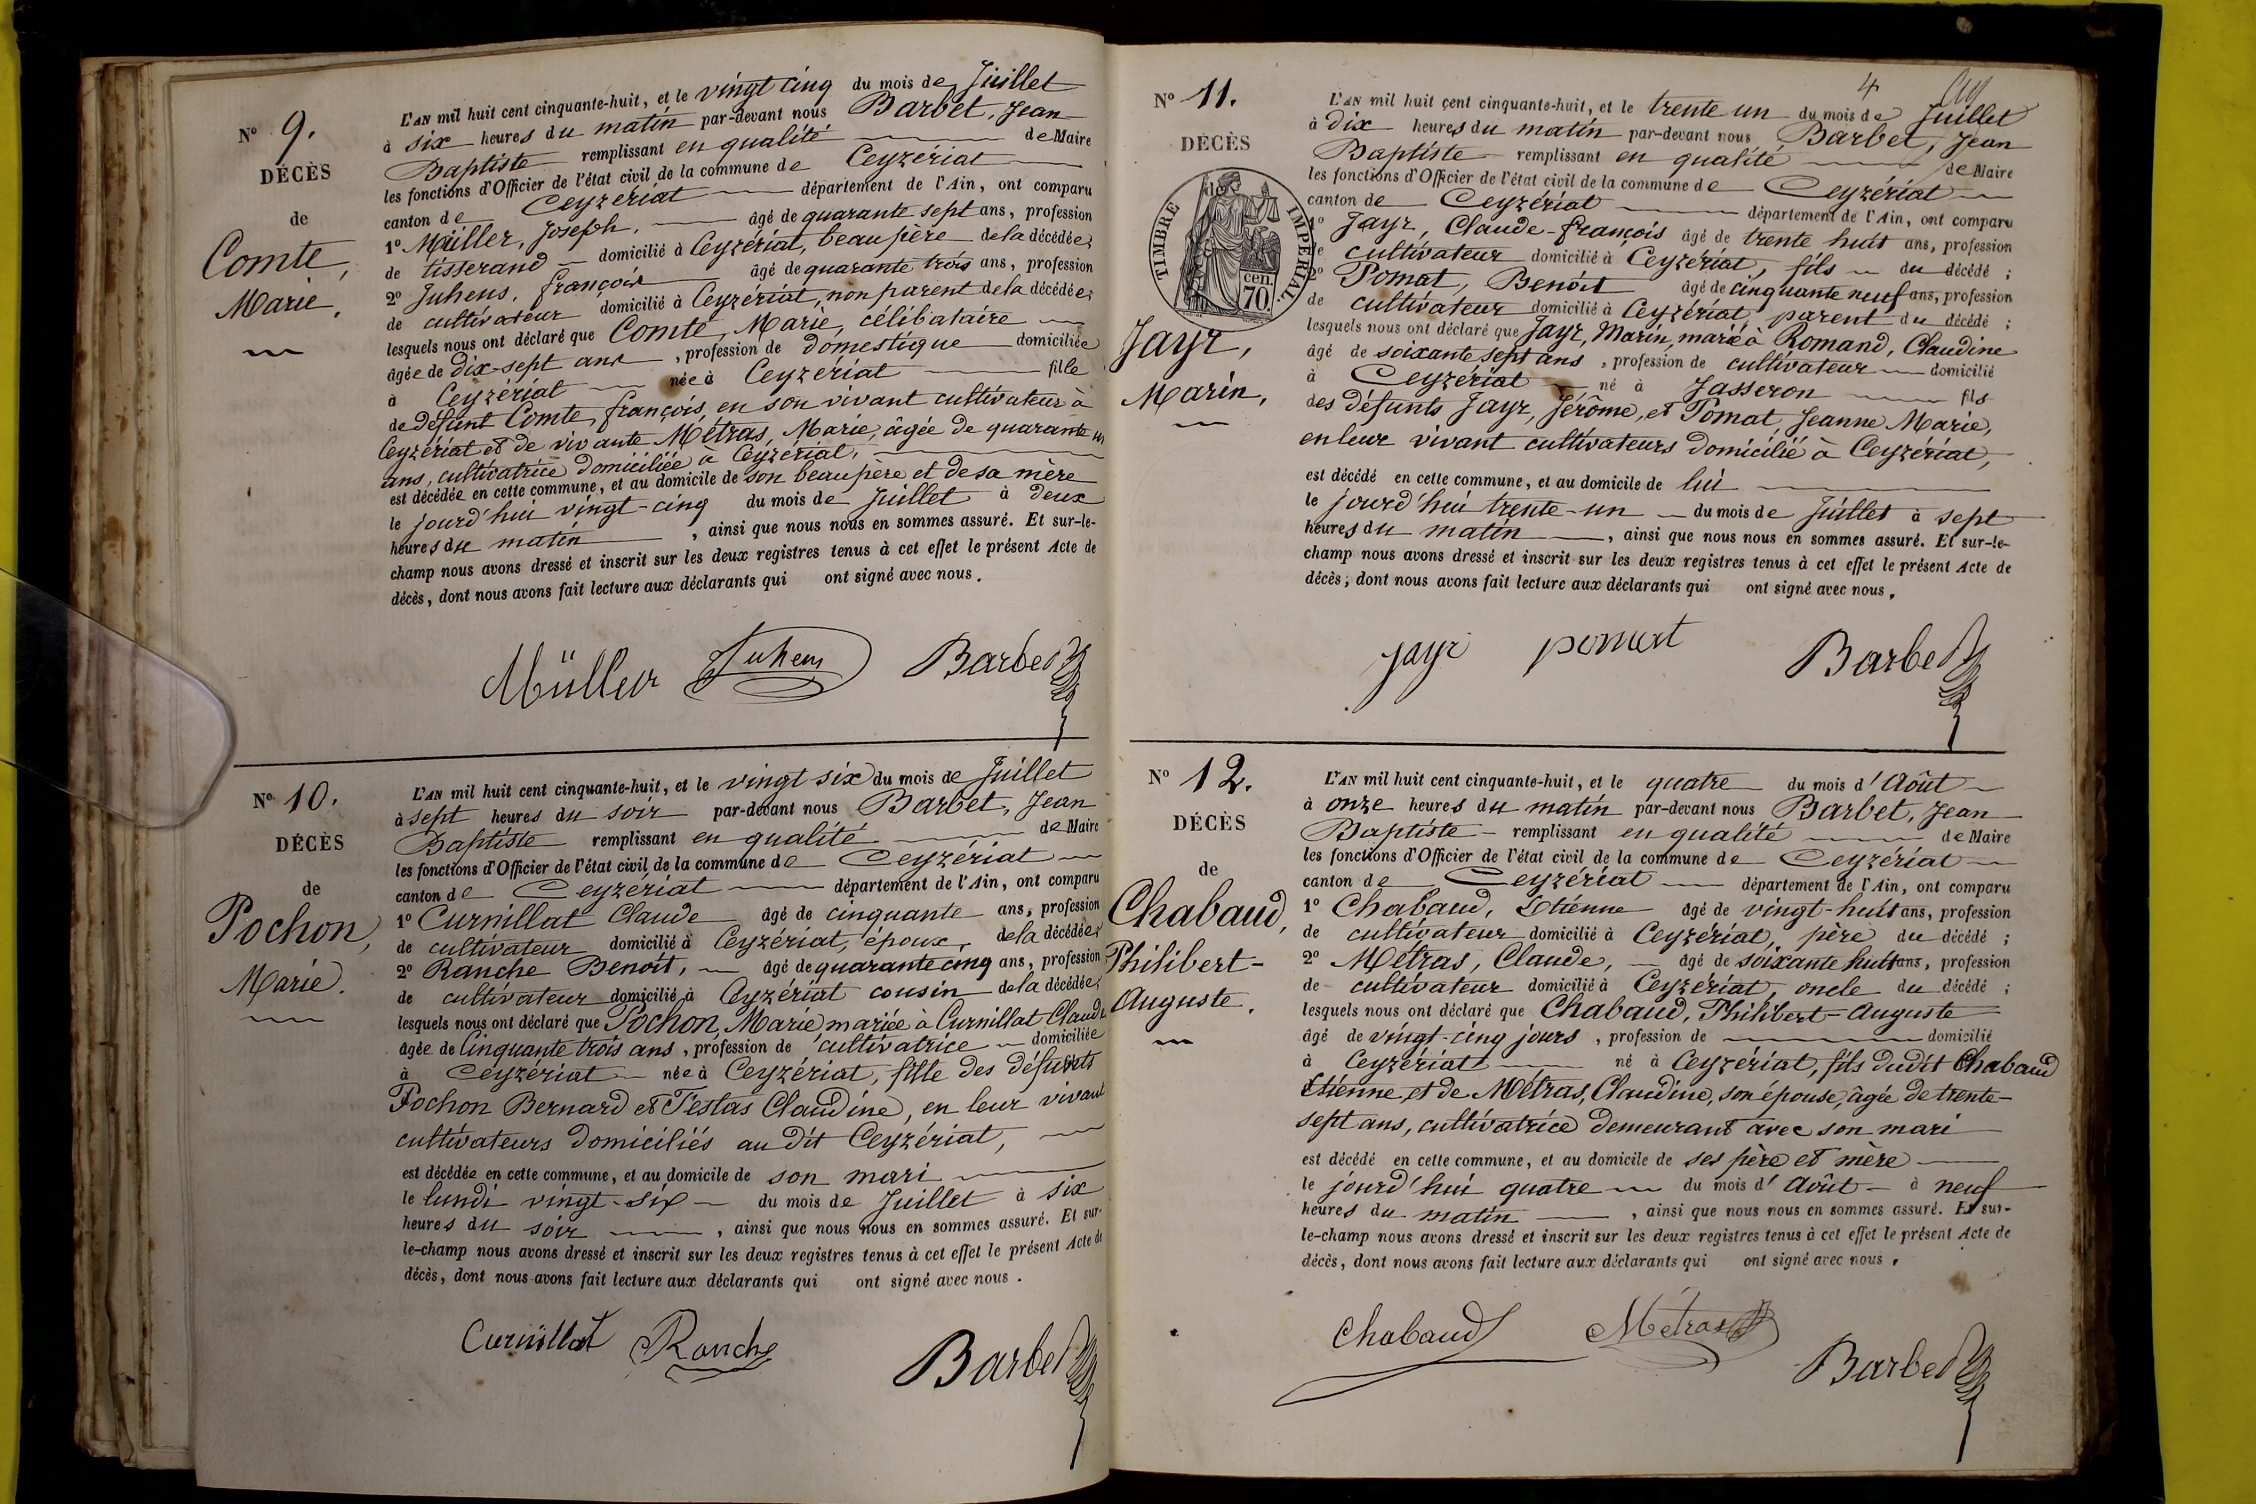 Nº 9.
DÉCÈS
de
Comte,
Marie.
L'AN mil huit cent cinquante-huit, et le vingt cinq du mois de Juillet
à six heures du matin par-devant nous Barbet, Jean
Baptiste remplissant en qualité de Maire
les fonctions d'Officier de l'état civil de la commune de Ceyzériat
canton de Ceyzériat département de l'Ain, ont comparu
1º Müller, Joseph, âgé de quarante sept ans, profession
de tisserand domicilié à Ceyzériat, beau père de la décédée;
2º Juhens, françois âgé de quarante trois ans, profession
de cultivateur domicilié à Ceyzériat, non parent de la décédée;
lesquels nous ont déclaré que Comte, Marie, célibataire
âgée de dix-sept ans, profession de domestique domiciliée
à Ceyzériat née à Ceyzériat fille
de défunt Comte, françois, en son vivant cultivateur à
Ceyzériat et de vivante Métras, Marie, âgée de quarante un
ans, cultivatrice domiciliée à Ceyzériat,
est décédée en cette commune, et au domicile de son beau père et de sa mère
le jourd'hui vingt-cinq du mois de Juillet à deux
heures du matin, ainsi que nous nous en sommes assuré. Et sur-le-
champ nous avons dressé et inscrit sur les deux registres tenus à cet effet le présent Acte de
décès, dont nous avons fait lecture aux déclarants qui ont signé avec nous.
Müller Juhens Barbet
Nº 10.
DÉCÈS
de
Pochon,
Marie.
L'AN mil huit cent cinquante-huit, et le vingt six du mois de Juillet
à sept heures du soir par-devant nous Barbet, Jean
Baptiste remplissant en qualité de Maire
les fonctions d'Officier de l'état civil de la commune de Ceyzériat
canton de Ceyzériat département de l'Ain, ont comparu
1º Curnillat Claude âgé de cinquante ans, profession
de cultivateur domicilié à Ceyzériat, époux, de la décédée;
2º Ranche Benoît, âgé de quarante cinq ans, profession
de cultivateur domicilié à Ceyzériat cousin de la décédée;
lesquels nous ont déclaré que Pochon, Marie mariée à Curnillat Claude
âgée de Cinquante trois ans, profession de cultivatrice domiciliée
à Ceyzériat née à Ceyzériat, fille des défunts
Pochon Bernard et Testas Claudine, en leur vivant
cultivateurs domiciliés au dit Ceyzériat,
est décédée en cette commune, et au domicile de son mari
le lundi vingt-six du mois de Juillet à six
heures du soir, ainsi que nous nous en sommes assuré. Et sur-
le-champ nous avons dressé et inscrit sur les deux registres tenus à cet effet le présent Acte de
décès, dont nous avons fait lecture aux déclarants qui ont signé avec nous.
Curnillat Ranche Barbet
4
Nº 11.
DÉCÈS
de
TIMBRE IMPÉRIAL.
70 cen.
Jayr,
Marin,
L'AN mil huit cent cinquante-huit, et le trente un du mois de Juillet
à dix heures du matin par-devant nous Barbet, Jean
Baptiste remplissant en qualité de Maire
les fonctions d'Officier de l'état civil de la commune de Ceyzériat
canton de Ceyzériat département de l'Ain, ont comparu
1º Jayr, Claude-françois âgé de trente huit ans, profession
de cultivateur domicilié à Ceyzériat, fils du décédé;
2º Pomat, Benoît âgé de cinquante neuf ans, profession
de cultivateur domicilié à Ceyzériat, parent du décédé;
lesquels nous ont déclaré que Jayr, Marin, marié à Romand, Claudine
âgé de soixante sept ans, profession de cultivateur domicilié
à Ceyzériat né à Jasseron fils
des défunts Jayr, Jérôme, et Pomat, Jeanne Marie,
en leur vivant cultivateurs domicilié à Ceyzériat,
est décédé en cette commune, et au domicile de lui
le jourd'hui trente-un du mois de Juillet à sept
heures du matin, ainsi que nous nous en sommes assuré. Et sur-le-
champ nous avons dressé et inscrit sur les deux registres tenus à cet effet le présent Acte de
décès, dont nous avons fait lecture aux déclarants qui ont signé avec nous.
Jayr pomat Barbet
Nº 12.
DÉCÈS
de
Chabaud,
Philibert-
Auguste.
L'AN mil huit cent cinquante-huit, et le quatre du mois d'Août
à onze heures du matin par-devant nous Barbet, Jean
Baptiste remplissant en qualité de Maire
les fonctions d'Officier de l'état civil de la commune de Ceyzériat
canton de Ceyzériat département de l'Ain, ont comparu
1º Chabaud, Etienne âgé de vingt-huit ans, profession
de cultivateur domicilié à Ceyzériat, père du décédé;
2º Métras, Claude, âgé de soixante huit ans, profession
de cultivateur domicilié à Ceyzériat, oncle du décédé;
lesquels nous ont déclaré que Chabaud, Philibert-Auguste
âgé de vingt-cinq jours, profession de domicilié
à Ceyzériat né à Ceyzériat, fils dudit Chabaud
Etienne et de Métras, Claudine, son épouse, âgée de trente-
sept ans, cultivatrice demeurant avec son mari
est décédé en cette commune, et au domicile de ses père et mère
le jourd'hui quatre du mois d'Août à neuf
heures du matin, ainsi que nous nous en sommes assuré. Et sur-
le-champ nous avons dressé et inscrit sur les deux registres tenus à cet effet le présent Acte de
décès, dont nous avons fait lecture aux déclarants qui ont signé avec nous.
Chabaud Métras Barbet